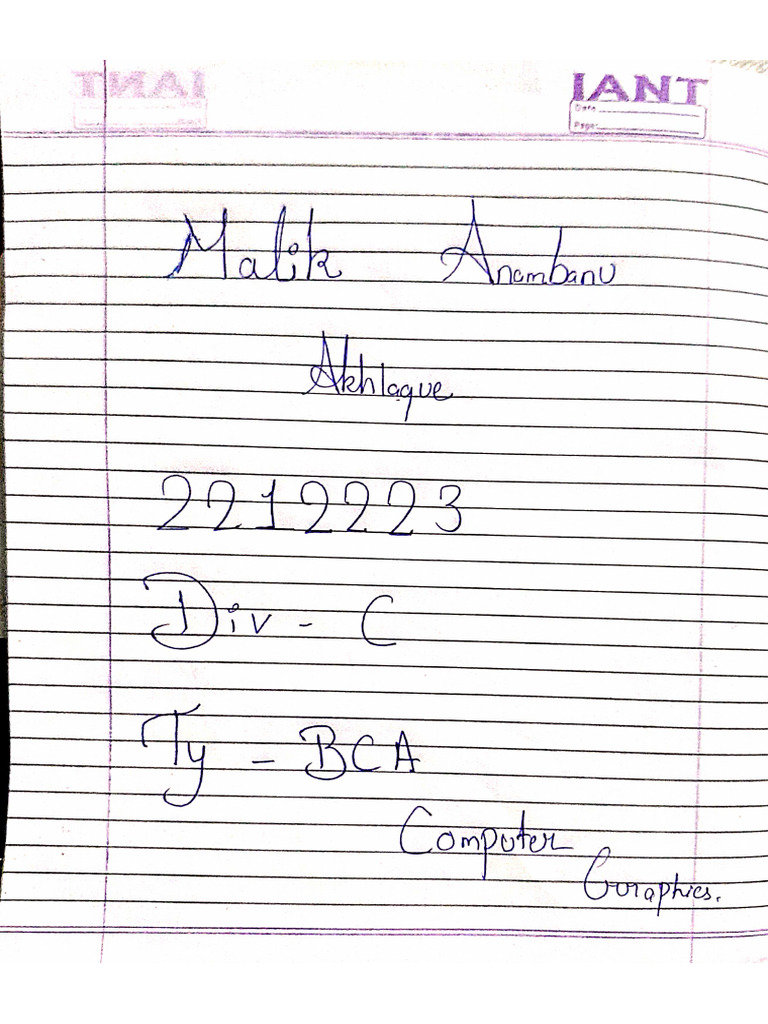 IANT
Date
Page
Malik Anambanu
Akhlaque
2212223
Div - C
Ty - BCA
Computer
Graphics.